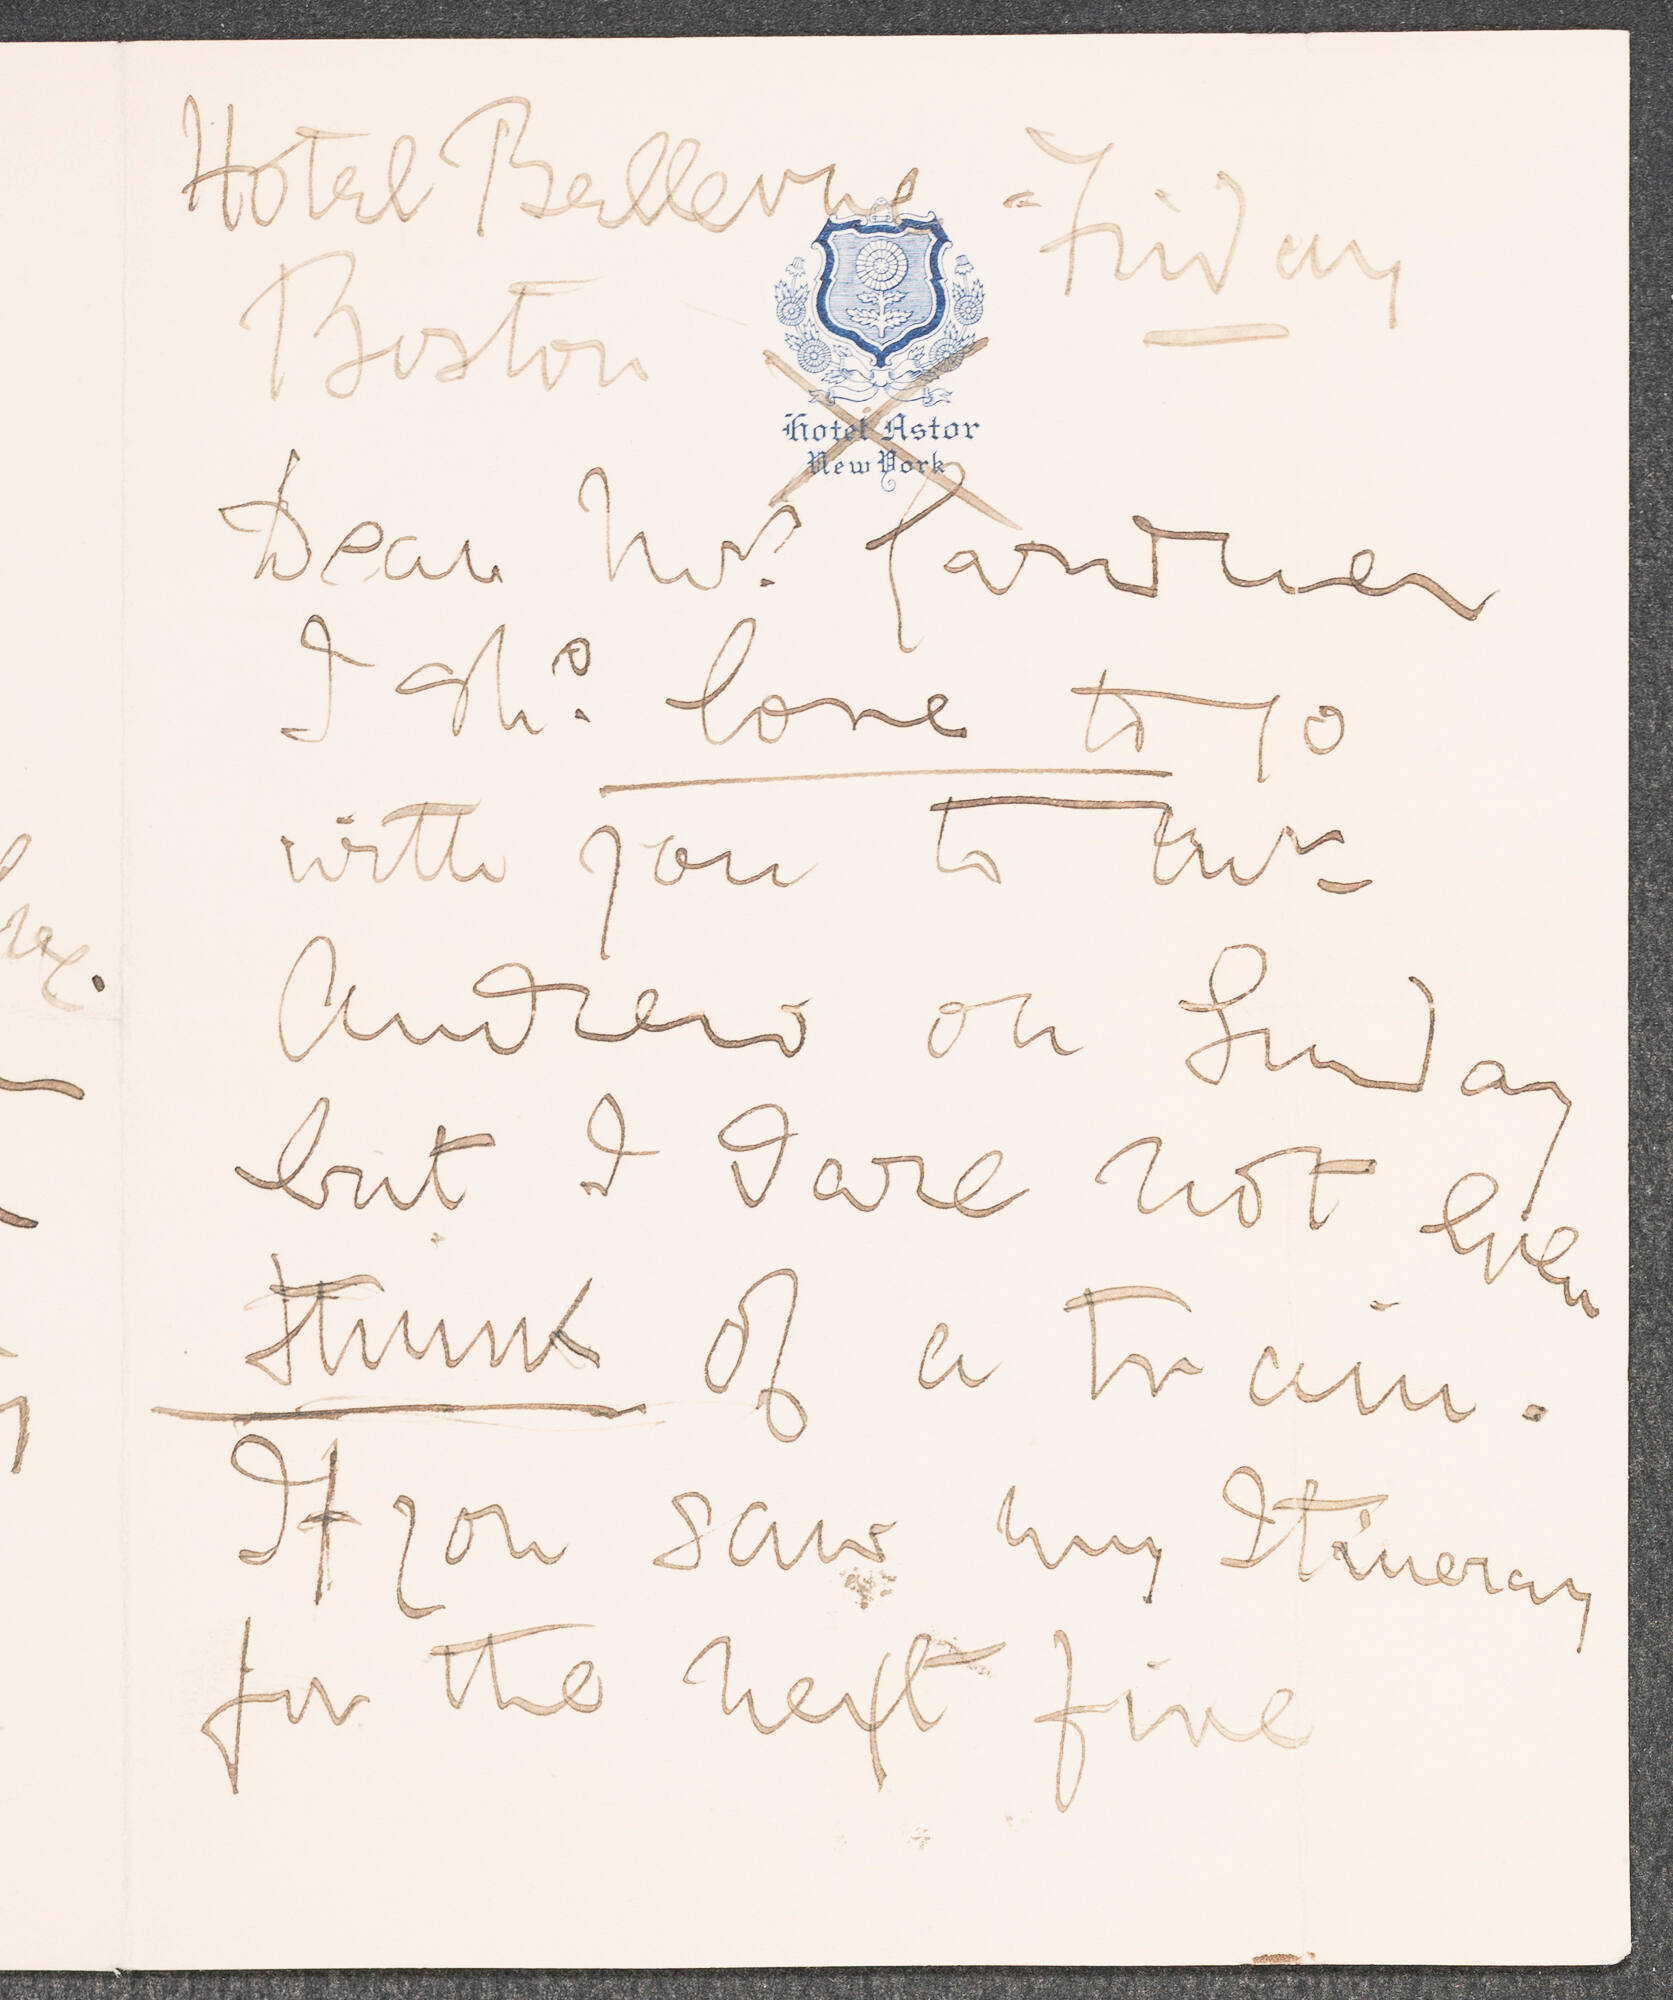 Hotel Bellevue - Friday
Boston
Hotel Astor
New York
Dear Mrs. Gardner
I shd. love to go
with you to Mrs
Andrew on Sunday
but I dare not even
think of a train.
If you saw my Itineray
for the next five